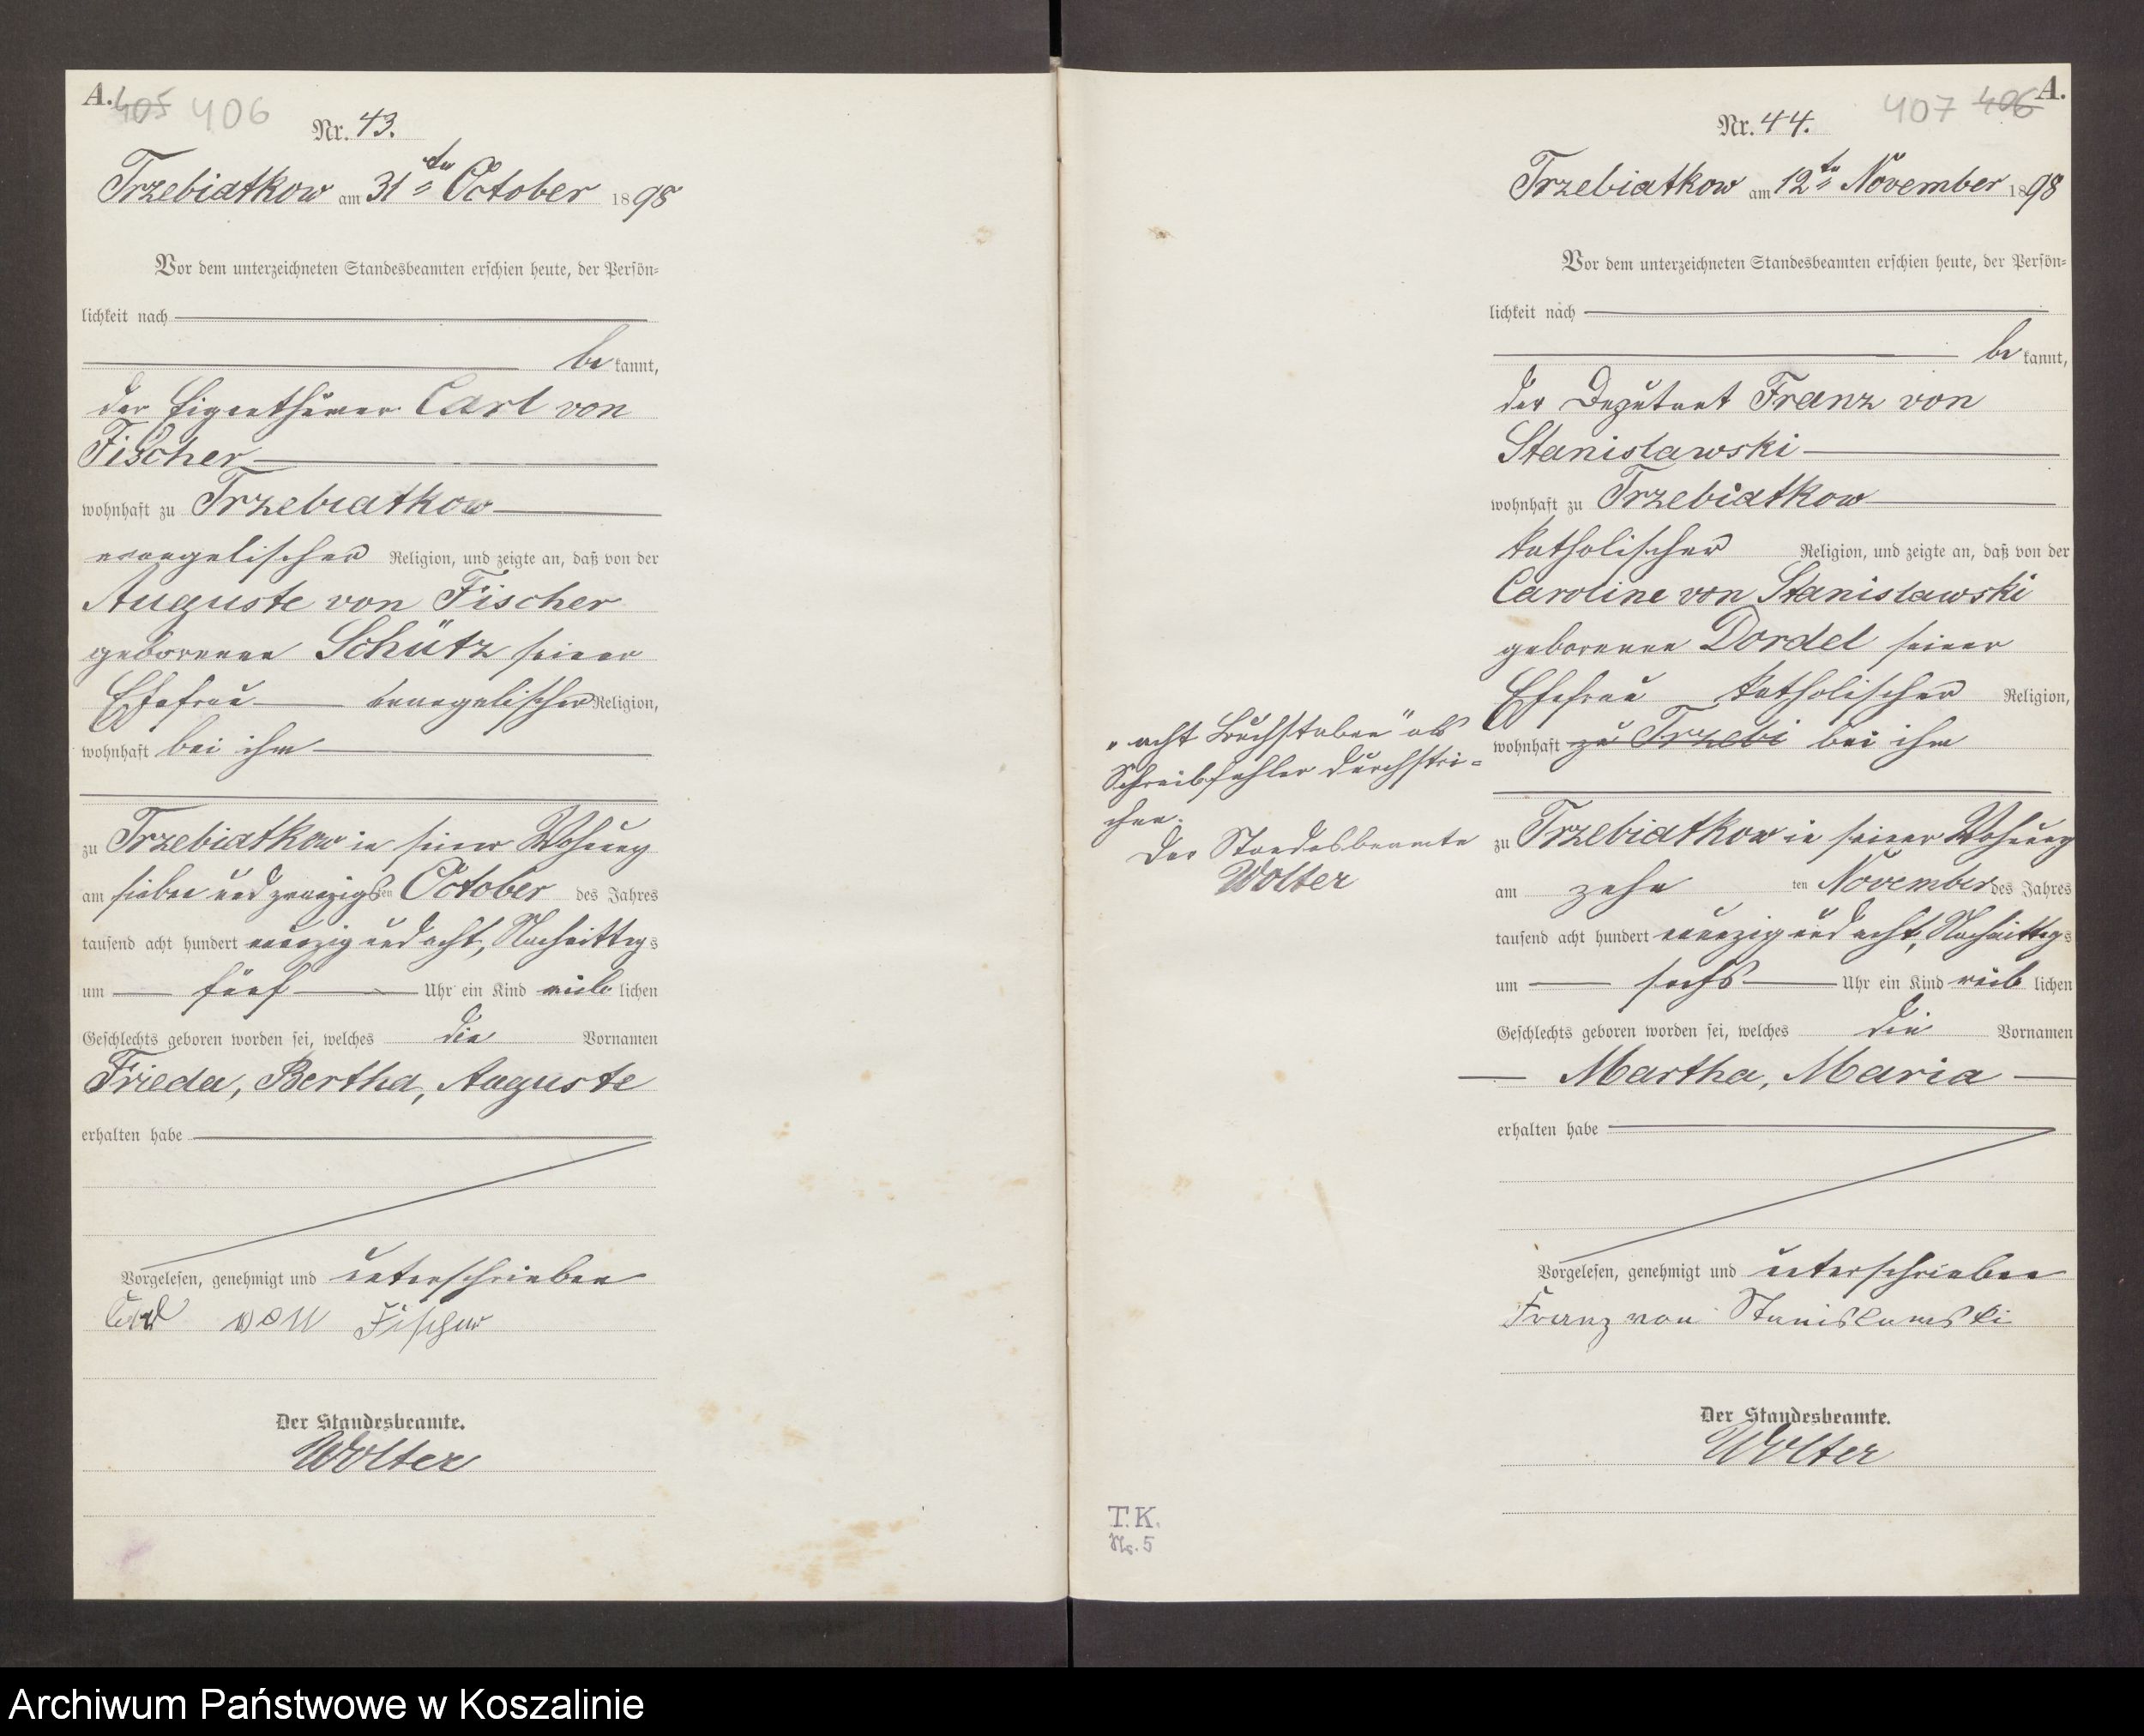 A.
405 406
Nr. 43.
Trzebiatkow am 31ten October 1898
Vor dem unterzeichneten Standesbeamten erschien heute, der Persön-
lichkeit nach
bekannt,
der Eigenthümer Carl von
Fischer
wohnhaft zu Trzebiatkow
evangelischer Religion, und zeigte an, daß von der
Auguste von Fischer
geborenen Schütz seiner
Ehefrau evangelischer Religion,
wohnhaft bei ihm
zu Trzebiatkow in seiner Wohung
am sieben und zwanzigsten October des Jahres
tausend acht hundert neunzig und acht, Nachmittags
um fünf Uhr ein Kind weiblichen
Geschlechts geboren worden sei, welches die Vornamen
Frieda, Bertha, Auguste
erhalten habe
Vorgelesen, genehmigt und unterschrieben
Carl von Fischer
Der Standesbeamte.
Wolter
A.
407 406
Nr. 44.
Trzebiatkow am 12ten November 1898
Vor dem unterzeichneten Standesbeamten erschien heute, der Persön-
lichkeit nach
bekannt,
der Deputant Franz von
Stanislawski
wohnhaft zu Trzebiatkow
katholischer Religion, und zeigte an, daß von der
Caroline von Stanislawski
geborenen Dordel seiner
Ehefrau katholischer Religion,
wohnhaft zu Trzebi bei ihm
zu Trzebiatkow in seiner Wohung
am zehn ten November des Jahres
tausend acht hundert neunzig und acht, Nachmittags
um sechs Uhr ein Kind weiblichen
Geschlechts geboren worden sei, welches die Vornamen
Martha, Maria
erhalten habe
Vorgelesen, genehmigt und unterschrieben
Franz von Stanislawski
Der Standesbeamte.
Wolter
„acht Buchstaben" als
Schreibfehler durchstri-
chen.
Der Standesbeamte
Wolter
T.K.
No. 5
Archiwum Państwowe w Koszalinie